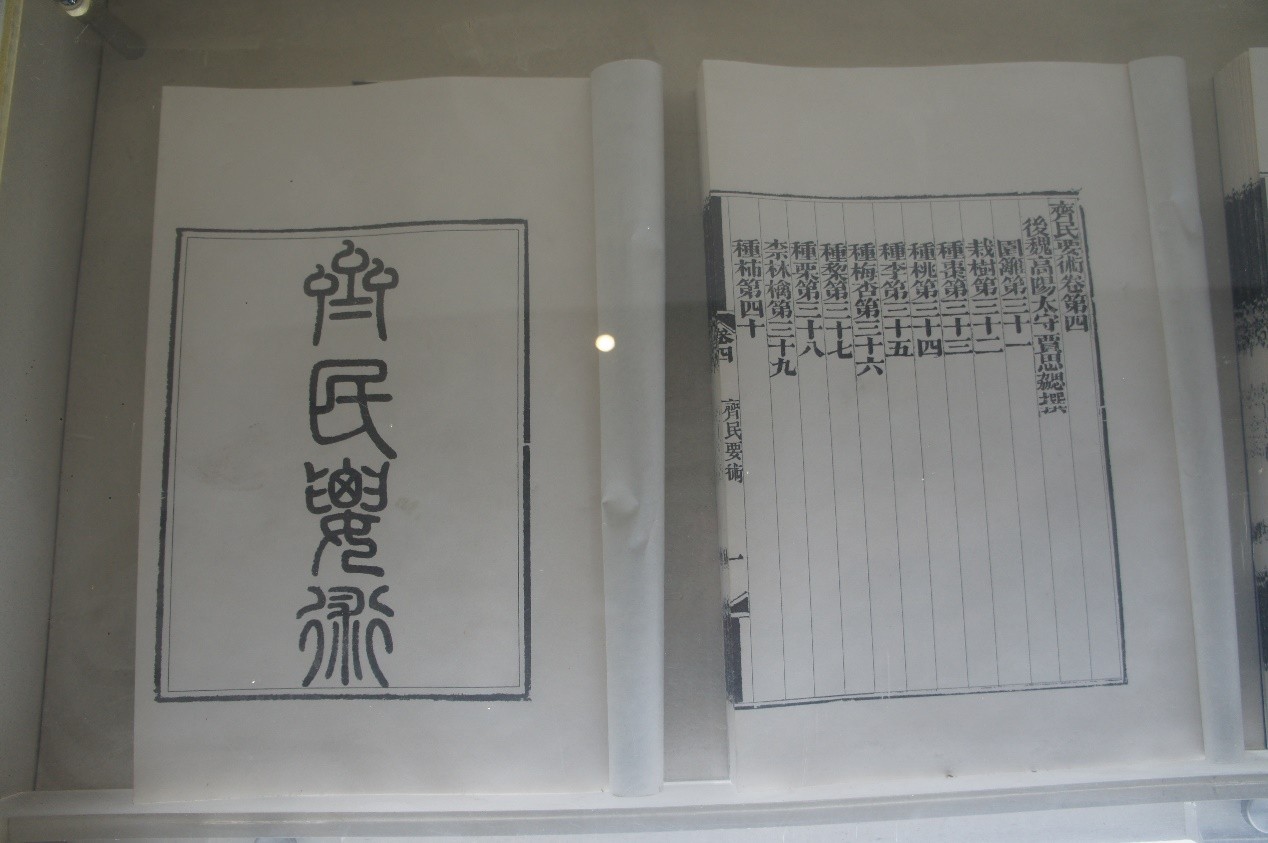 齊民要術
齊民要術卷第四
後魏高陽太守賈思勰撰
園籬第三十一
栽樹第三十二
種棗第三十三
種桃第三十四
種李第三十五
種梅杏第三十六
種棃第三十七
種栗第三十八
柰林檎第三十九
種柿第四十
卷四
齊民要術
一